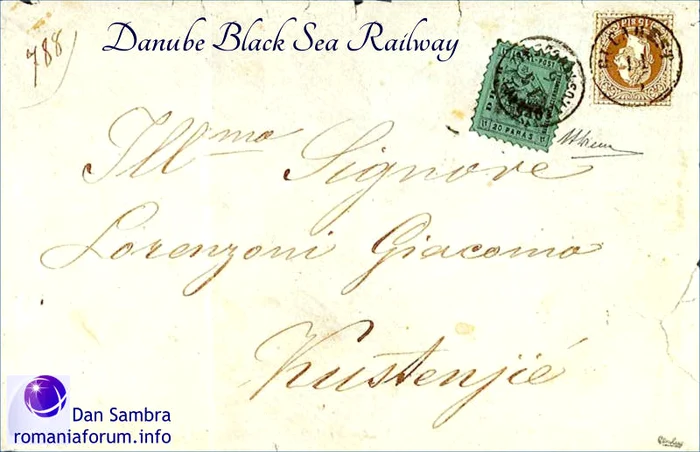 788
Danube Black Sea Railway
20 PARAS
Ill.mo Signore
Lorenzoni Giacomo
Kustenjié
Dan Sambra
romaniaforum.info